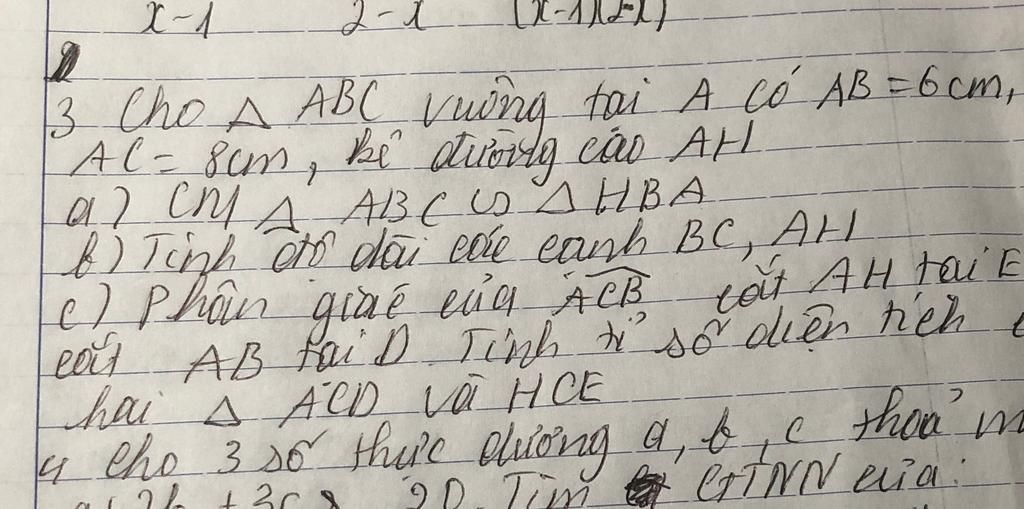 x-1 2-x (x-1)(2-x)
3 Cho Δ ABC vuông tại A có AB = 6cm,
AC = 8cm, kẻ đường cao AH
a) CM Δ ABC ∽ Δ HBA
b) Tính độ dài các cạnh BC, AH
c) Phân giác của ACB cắt AH tại E
cắt AB tại D Tính tỉ số diện tích
hai Δ ACD và HCE
4 Cho 3 số thực dương a, b, c thoả m
20. Tìm GTNN của: